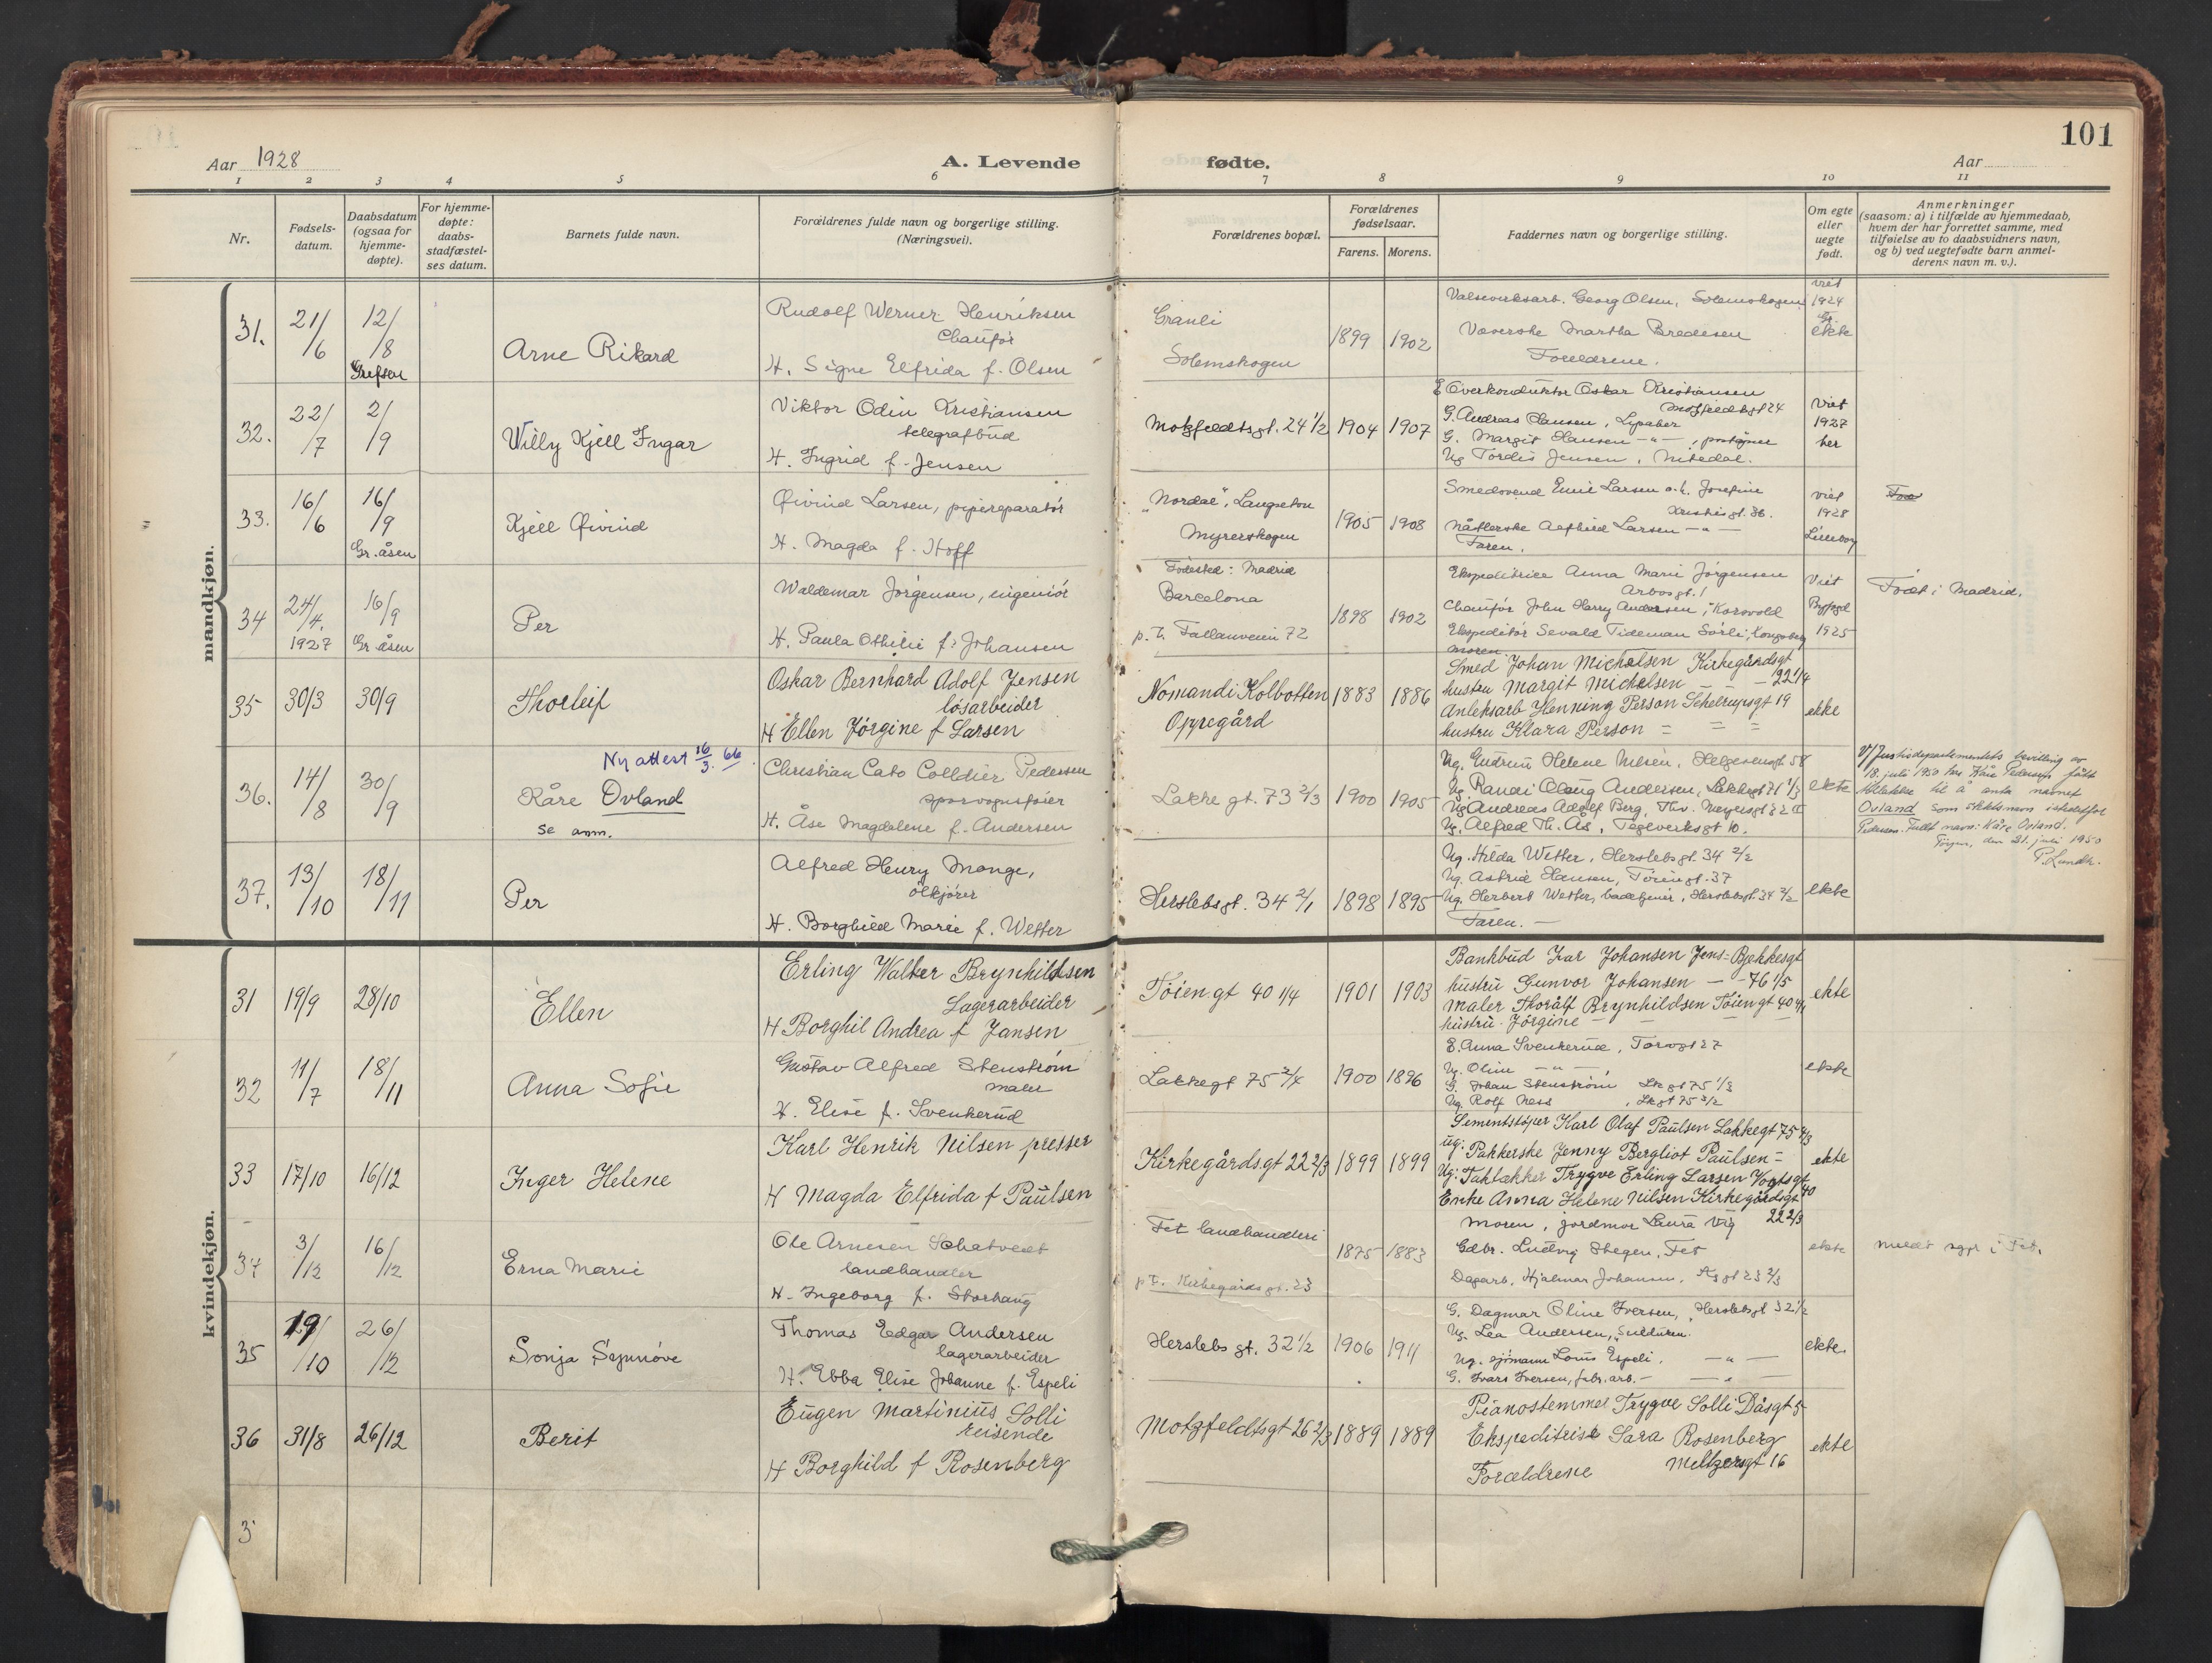 101
Aar 1928
A. Levende
fødte.
Aar
1 2 3 4 5 6 7 8 9 10 11
Nr.
Fødsels-
datum.
Daabsdatum
(ogsaa for
hjemme-
døpte).
For hjemme-
døpte:
daabs-
stadfæstel-
ses datum.
Barnets fulde navn.
Forældrenes fulde navn og borgerlige stilling.
(Næringsvei).
Forældrenes bopæl.
Forældrenes
fødselsaar.
Farens. Morens.
Faddernes navn og borgerlige stilling.
Om egte
eller
uegte
født.
Anmerkninger
(saasom: a) i tilfælde av hjemmedaab,
hvem der har forrettet samme, med
tilføielse av to daabsvidners navn,
og b) ved uegtefødte barn anmel-
derens navn m. v.).
mandkjøn.
31. 21/6 12/8 Grefsen
Arne Rikard
Rudolf Werner Henriksen
Chaufør
H. Signe Elfrida f. Olsen
Granli
Solemskogen
1899 1902
Valseverksarb. Georg Olsen, Solemskogen
Væverske Martha Bredesen
Foreldrene.
viet
1924
Gr.
ekte
32. 22/7 2/9
Willy Kjell Ingar
Viktor Odin Kristiansen
telegrafbud
H. Ingrid f. Jensen
Motzfeldtsgt. 24 1/2
1904 1907
E Overkonduktør Oskar Kristiansen
Motzfeldtsgt 24
G. Andreas Hansen,
G. Margit Hansen — " —,
Ug Tordis Jensen, Nitedal.
Viet
1927
her
33. 16/6 16/9 Gr. åsen
Kjell Øivind
Øivind Larsen, pipereparatør
H. Magda f. Hoff
"Nordal", Langseten
Myrerskogen
1905 1908
Smedsvend Emil Larsen o. h. Josefine
Kristiisgt. 86.
Nåtlerske Alfhild Larsen — " —
Faren.
viet
1928
Lilleborg
34 24/4. 1927 16/9 Gr. åsen
Per
Waldemar Jørgensen, ingeniør
H. Paula Othilie f. Johansen
Fødested: Madrid
Barcelona
p. t. Fallanveien 72
1898 1902
Ekspeditrice Anna Marie Jørgensen
Arbosgt. 1
Chaufør John Harry Andersen, Korsvold
Ekspeditør Sevald Tideman Sørli, Kongsberg
Moren.
Viet
Bygsgd
1925
Født i Madrid.
35 30/3 30/9
Thorleif
Oskar Bernhard Adolf Jensen
løsarbeider
H Ellen Jørgine f Larsen
Nomandi Kolbotten
Opregård
1883 1886
Smed Johan Michelsen Kirkegårdsgt
hustru Margit Michelsen — — 22 1/4
Anleksarb Henning Person Schelrupsgt 19
hustru Klara Person = = =
ekte
36. 14/8 30/9
Ny attest 16/3. 66.
Kåre Ovland
se anm.
Christian Cato Colldier Pedersen
sporvognsfører
H. Åse Magdalene f. Andersen
Lakkegt. 73 2/3
1900 1905
Ug. Gudrun Helene Nilsen, Helgesensgt 58
Ug. Randi Olaug Andersen, Lakkegt 71 1/3
Ug Andreas Adolf Berg, Thv. Meyersgt 32 II
Ug. Alfred Th. Ås, Teglverksgt 10.
ekte
V/ Justisdepartementets bevilling av
18. juli 1950 har Kåre Pedersen fått
tillatelse til å anta navnet
Ovland som slektsnavn istedetfor
Pedersen. Fullt navn: Kåre Ovland.
Tøyen, den 31. juli 1950
P. Lundh.
37. 13/10 18/11
Per
Alfred Henry Monge,
ølkjører
H. Borghild Marie f. Wetter
Herslebsgt. 34 2/1
1898 1895
Ug. Hilda Wetter, Herslebsgt. 34 2/2
Ug. Astrid Hansen, Tøiengt. 37
Ug. Herbert Wetter, badetjener, Herslebsgt. 34 2/2
Faren. —
ekte
kvindekjøn.
31 19/9 28/10
Ellen
Erling Walter Brynhildsen
Lagerarbeider
H Borghil Andrea f Jansen
Tøiengt 40 1/4
1901 1903
Bankbud Ivar Johansen Jens=Bjelkesgt
hustru Gunvor Johansen — - 76 1/5
Maler Thoralf Brynhildsen Tøiengt 40 4/1
hustru Jørgine — — —
ekte
32 11/7 18/11
Anna Sofie
Gustav Alfred Stenstrøm
maler
H. Elise f. Svenkerud
Lakkegt 75 2/4
1900 1896
E. Anna Svenkerud, Torvgt 27
Ug. Oline — " —
G. Johan Stenstrøm, Lkgt 75 1/3
Ug. Rolf Ness, Lkgt 75 3/2
ekte
33 17/10 16/12
Inger Helene
Karl Henrik Nilsen presser
H Magda Elfrida f Paulsen
Kirkegårdsgt 22 2/3
1899 1899
Sementstøper Karl Olaf Paulsen Lakkegt 75 4/3
ug: Pakkerske Jenny Bergliot Paulsen =
Ug: Taktækker Trygve Erling Larsen Vogtsgt 40
Enke Anna Helene Nilsen Kirkegårdsgt
22 2/3
ekte
34 3/12 16/12
Erna Marie
Ole Arnesen Schatvedt
landhandler
H. Ingeborg f. Storhaug
Fet landhandleri
p. t. Kirkegårdsgt. 23
1875 1883
Moren, jordmor Laura Vig
Gdbr. Ludvig Stegen, Fet
Dagarb. Hjalmar Johansen, Kgt 23 2/3
ekte
meldt sgpr i Fet.
35 19/10 26/12
Sonja Synnøve
Thomas Edgar Andersen
lagerarbeider
H. Ebba Elise Johanne f. Espeli
Herslebs gt. 32 1/2
1906 1911
G. Dagmar Oline Iversen, Herslebsgt 32 1/2
Ug. Lea Andersen,
Ug. sjømann Louis Espeli, — " —
G. Ivars Iversen, fabr. arb. — — " —
ekte.
36 31/8 26/12
Berit
Eugen Martinius Solli
reisende
H Borghild f Rosenberg
Motzfeldtsgt 26 2/3
1889 1889
Pianostemmer Trygve Solli Dåsgt 5
Ekspeditrise Sara Rosenberg
Meltzersgt 16
Forældrene
ekte
3